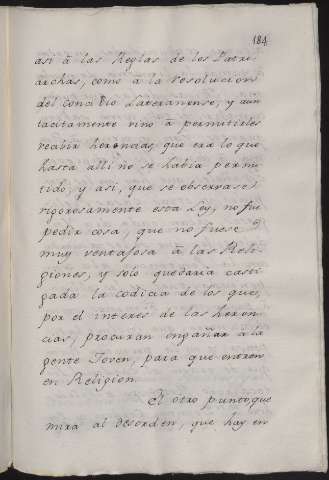 184
asi à las Reglas de los Patri-
archas, como à la resolucion
del concilio Lateranense, y aun
tacitamente vino à permitirles
recibir herencias, que era lo que
hasta alli no se habia permi-
tido; y asi, que se observase
rigorosamente esta Ley, no fue
pedir cosa, que no fuese
muy ventajosa à las Reli-
giones, y solo quedaria casti-
gada la codicia de los que,
por el interes de las heren-
cias, procuran engañar à la
gente Joven, para que entren
en Religion.
El otro punto, que
mira al desorden, que hay en